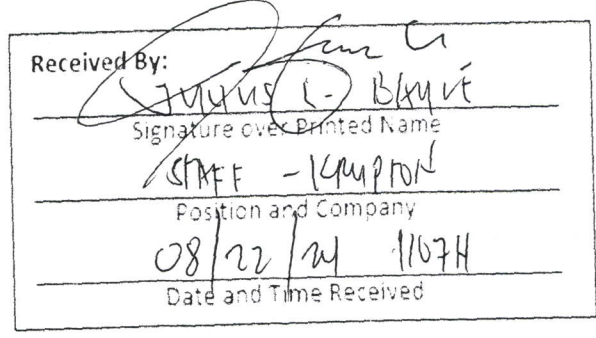 Received By:
L.
Signature over Printed Name
STAFF - KRYPTON
Position and Company
08/22/24 1107H
Date and Time Received